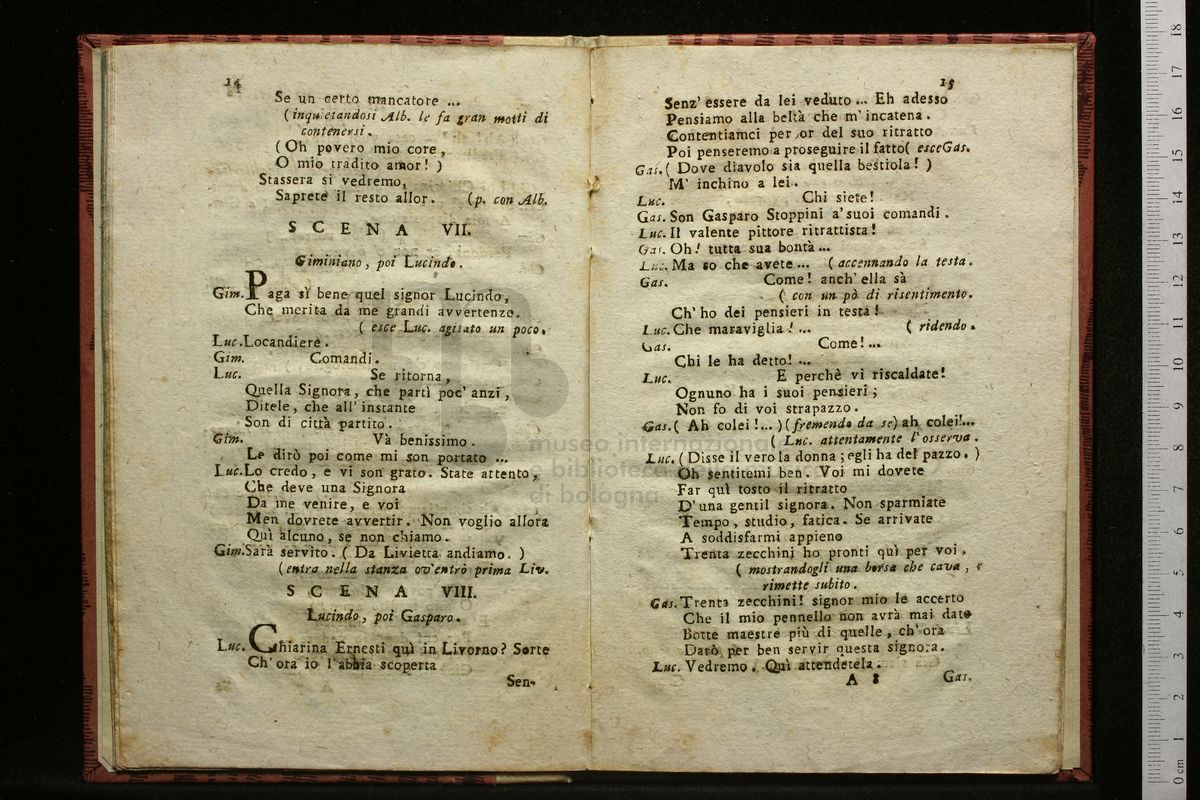 14
Se un certo mancatore ...
(inquietandosi Alb. le fa gran motti di
contenersi.
(Oh povero mio core,
O mio tradito amor!)
Stassera si vedremo,
Saprete il resto allor. (p. con Alb.
SCENA VII.
Giminiano, poi Lucindo.
Gim. Paga sì bene quel signor Lucindo,
Che merita da me grandi avvertenze.
(esce Luc. agitato un poco.
Luc. Locandiere.
Gim. Comandi.
Luc. Se ritorna,
Quella Signora, che partì poc' anzi,
Ditele, che all' instante
Son di città partito.
Gim. Và benissimo.
Le dirò poi come mi son portato ...
Luc. Lo credo, e vi son grato. State attento,
Che deve una Signora
Da me venire, e voi
Men dovrete avvertir. Non voglio allora
Quì alcuno, se non chiamo.
Gim. Sarà servito. (Da Livietta andiamo.)
(entra nella stanza ov'entrò prima Liv.
SCENA VIII.
Lucindo, poi Gasparo.
Luc. Chiarina Ernesti quì in Livorno? Sorte
Ch' ora io l'abbia scoperta
Sen-
15
Senz' essere da lei veduto ... Eh adesso
Pensiamo alla beltà che m' incatena.
Contentiamci per or del suo ritratto
Poi penseremo a proseguire il fatto (esce Gas.
Gas. (Dove diavolo sia quella bestiola!)
M' inchino a lei.
Luc. Chi siete!
Gas. Son Gasparo Stoppini a' suoi comandi.
Luc. Il valente pittore ritrattista!
Gas. Oh! tutta sua bontà ...
Luc. Ma so che avete ... (accennando la testa.
Gas. Come! anch' ella sà
(con un pò di risentimento.
Ch' ho dei pensieri in testa!
Luc. Che maraviglia! ... (ridendo.
Gas. Come! ...
Chi le ha detto! ...
Luc. E perchè vi riscaldate!
Ognuno ha i suoi pensieri;
Non fo di voi strapazzo.
Gas. (Ah colei! ...) (fremendo da se) ah colei! ...
(Luc. attentamente l'osserva.
Luc. (Disse il vero la donna; egli ha del pazzo.)
Oh sentitemi ben. Voi mi dovete
Far quì tosto il ritratto
D'una gentil signora. Non sparmiate
Tempo, studio, fatica. Se arrivate
A soddisfarmi appieno
Trenta zecchini ho pronti quì per voi.
(mostrandogli una borsa che cava, e
rimette subito.
Gas. Trenta zecchini! signor mio le accerto
Che il mio pennello non avrà mai dato
Botte maestre più di quelle, ch' ora
Darò per ben servir questa signora.
Luc. Vedremo. Quì attendetela.
A 8 Gas.
museo internazionale
e biblioteca della musica
di bologna
0 cm 1 2 3 4 5 6 7 8 9 10 11 12 13 14 15 16 17 18